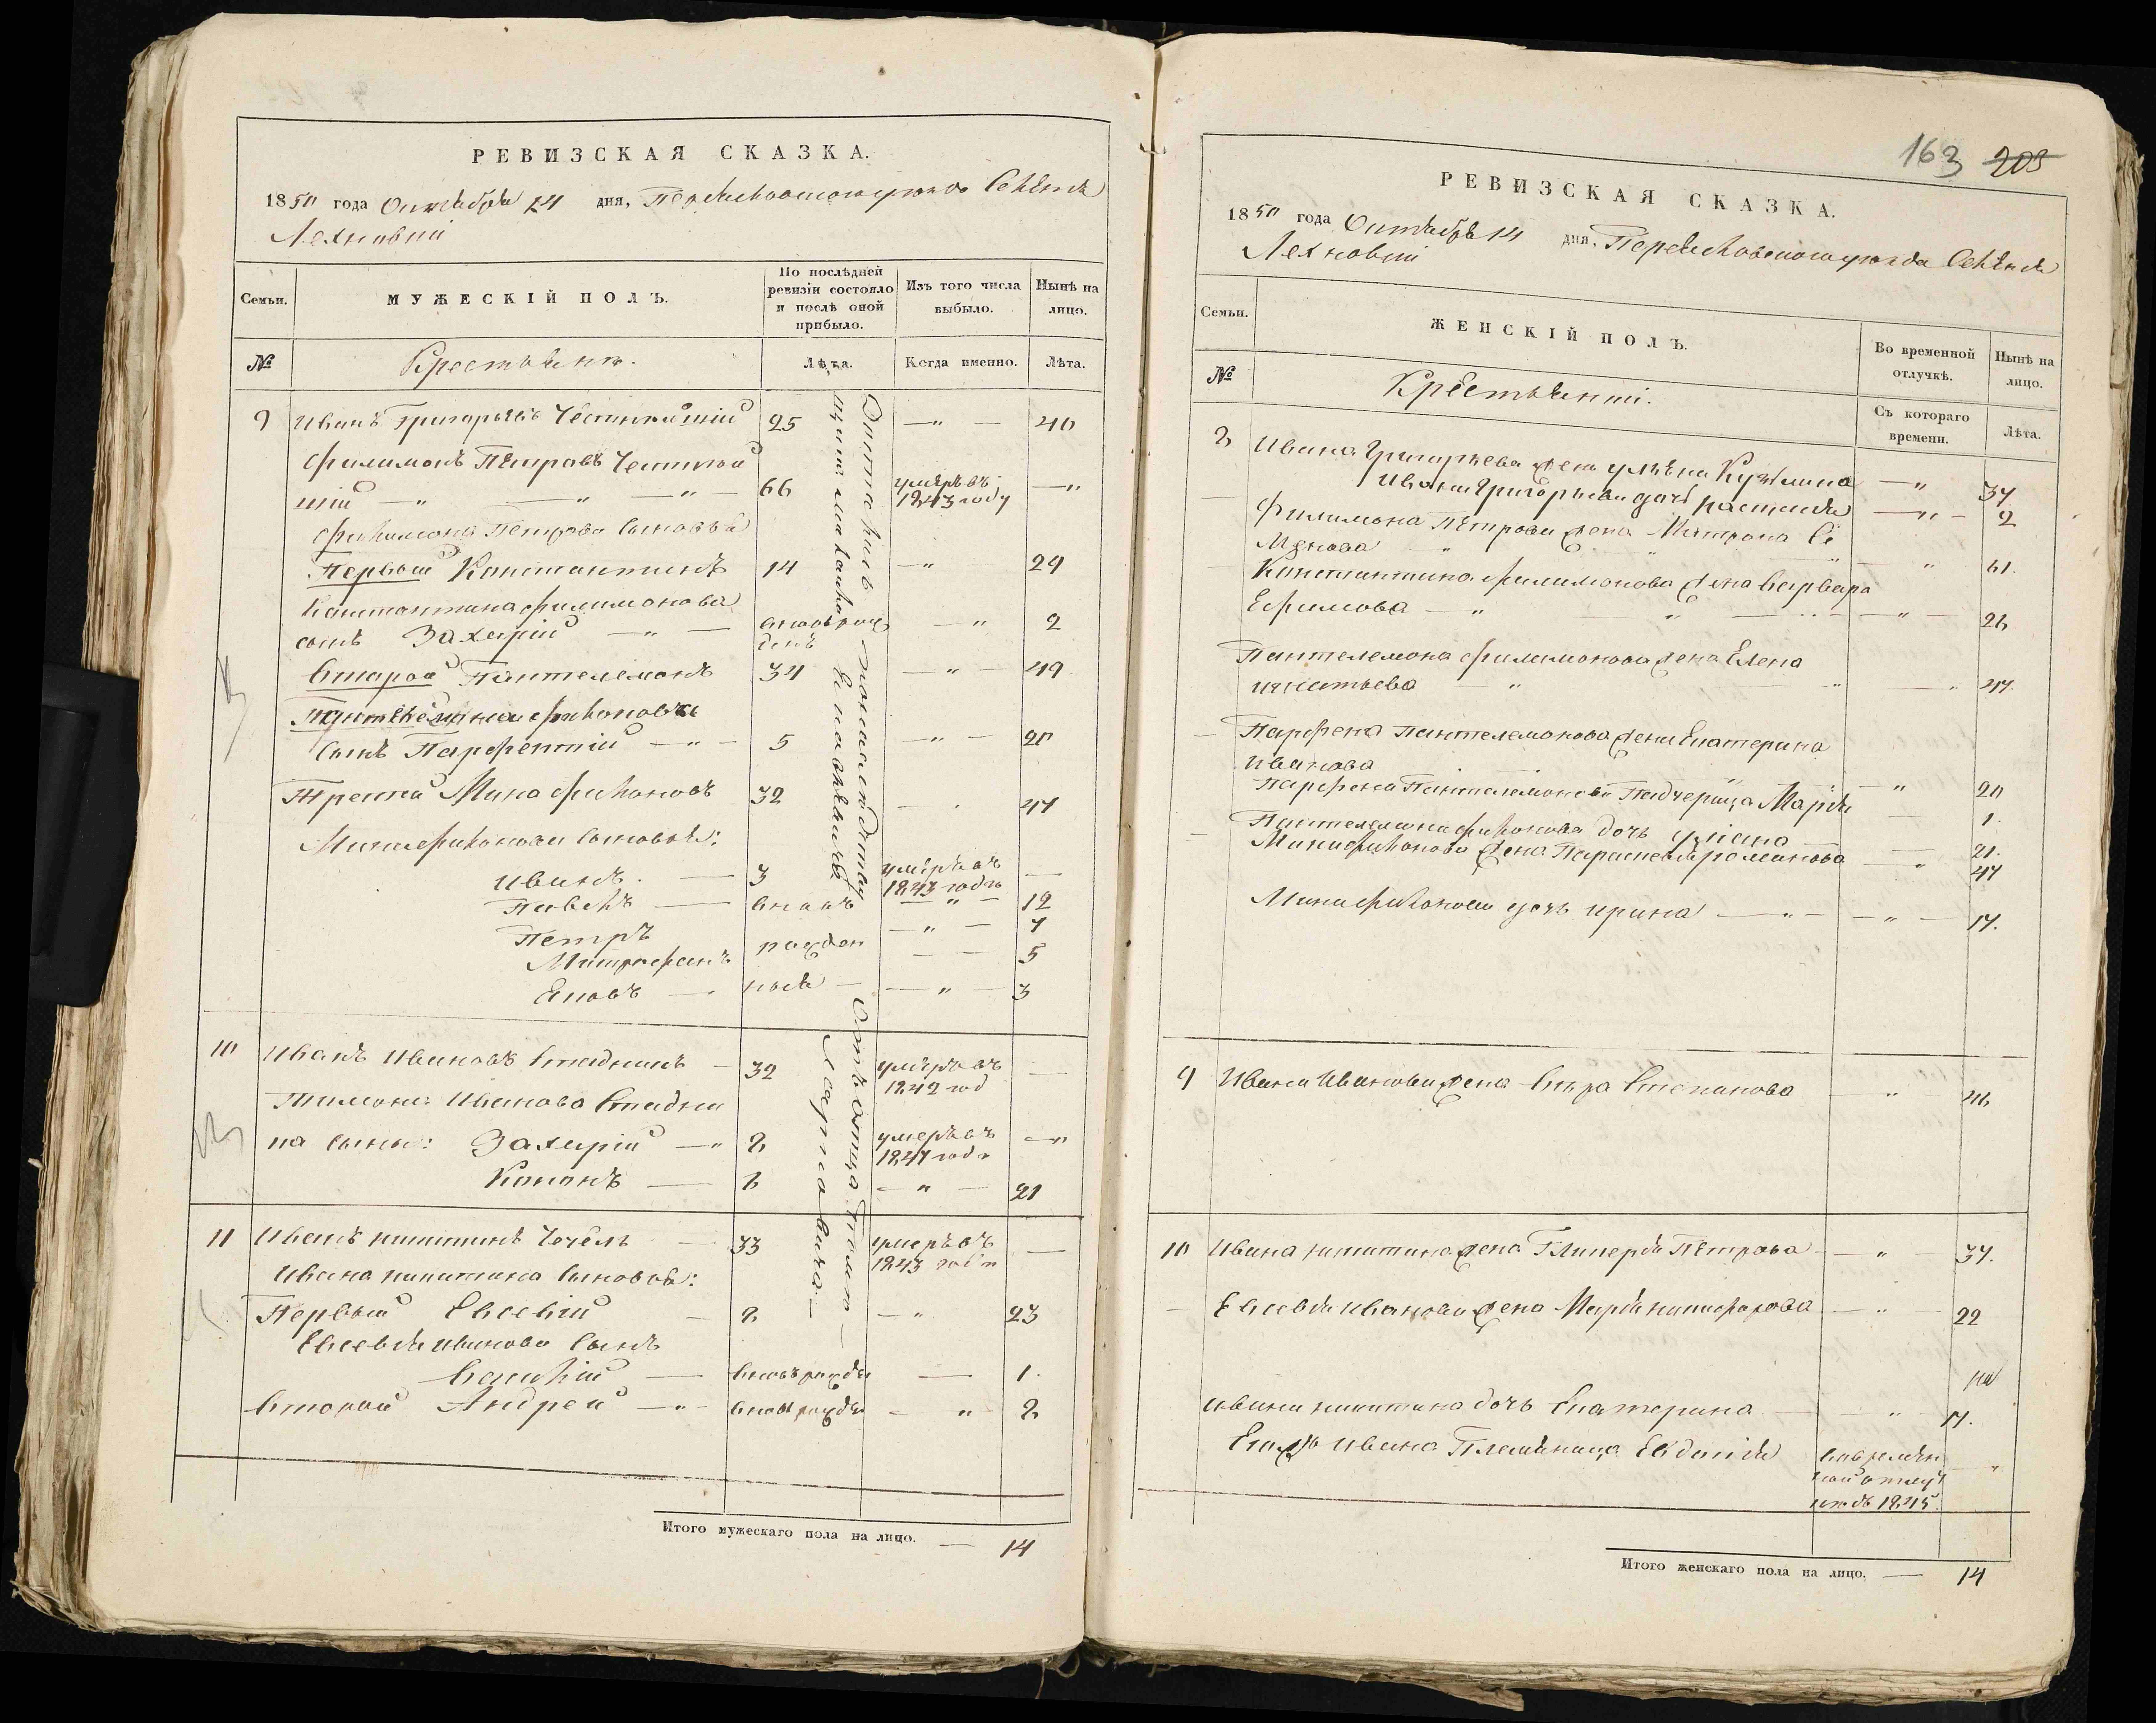 РЕВИЗСКАЯ СКАЗКА.
1850 года Октября 14 дня, Переяславскогоуезда Селеня
Лехновки
Семьи.
МУЖЕСКІЙ ПОЛЪ.
По послѣдней ревизіи состояло и послѣ оной прибыло.
Изъ того числа выбыло.
Нынѣ на лицо.
№
Крестьяне.
Лѣта.
Когда именно.
Лѣта.
9 Иванъ Григорьевъ 25 — " — 40
Филимонъ Петровъ
— " — " — " — 66 умеръ въ 1843 году — "
Филимона Петрова сыновья
Первый Константинъ 14 — " 29
Константина Филимонова
сынъ Захарій — " — вновь рожденъ — " 2
Второй Пантелемонъ 34 — " — 49
Пантелемона Филимонова
сынъ Парфентій — " — 5 — " — 20
Третій Мина Филимоновъ 32 — 47
Мины Филимонова сыновья:
Иванъ. — 3 умеръ въ 1843 годъ —
Павелъ — вновъ — " — 12
Петръ — " — 7
Митрофанъ рожден — — 5
Яковъ — ныя — — " — 3
10 Иванъ Ивановъ Стадникъ — 32 умеръ въ 1842 год —
Тимона Иванова Стадни
ка сыны: Захарій — " 8 умеръ въ 1847 годъ — "
Кононъ — 6 — " — 21
11 Иванъ Никитинъ Чечель — 33 умеръ въ 1843 годъ —
Ивана Никитина сыновья:
Первый Евсевій — 8 — " 23
Евсевія Иванова сынъ
Василій — вновъ рожде — 1.
Второй Андрей — " — вновъ рожде — " 8
Итого мужескаго пола на лицо. — 14
163 203
РЕВИЗСКАЯ СКАЗКА.
1850 года Октября 14 дня, Переяславскогоуезда Селеня
Лехновки
Семьи.
ЖЕНСКІЙ ПОЛЪ.
Во временной отлучкѣ.
Нынѣ на лицо.
№
Крестьянки.
Съ котораго времени.
Лѣта.
8 Ивана Григорьева жена Ульяна Кузьмина — " 37
Ивана Григорьева дочь — " — 2
Филимона Петрова жена Матрона Се
менова " " — " 61.
Константина Филимонова жена Варвара
Ефимова — " " — " — 26
Пантелемона Филимонова жена Елена
Игнатьева — " — " — " 47.
Парфена Пантелемонова жена Екатерина
Иванова — " 20
Парфена Пантелемонова Падчерица Марія — 1.
Пантелемона Филимонова дочь Уліана — 21.
Мины Филимонова жена Параскева Романова — " 47
Мины Филимонова дочь Ирина — " — — " — 17.
9 Ивана Иванова жена Вера Степанова — " — 46
10 Ивана Никитина жена Гликерія Петрова — — " — 37.
— Евсевія Иванова жена Марія Никифорова — " — 22
Ивана Никитина дочь Екатерина — " 17.
Егожъ Ивана Племяница Евдокія вовремен ной отлуч кѣ съ 1845. — "
Итого женскаго пола на лицо. — 14